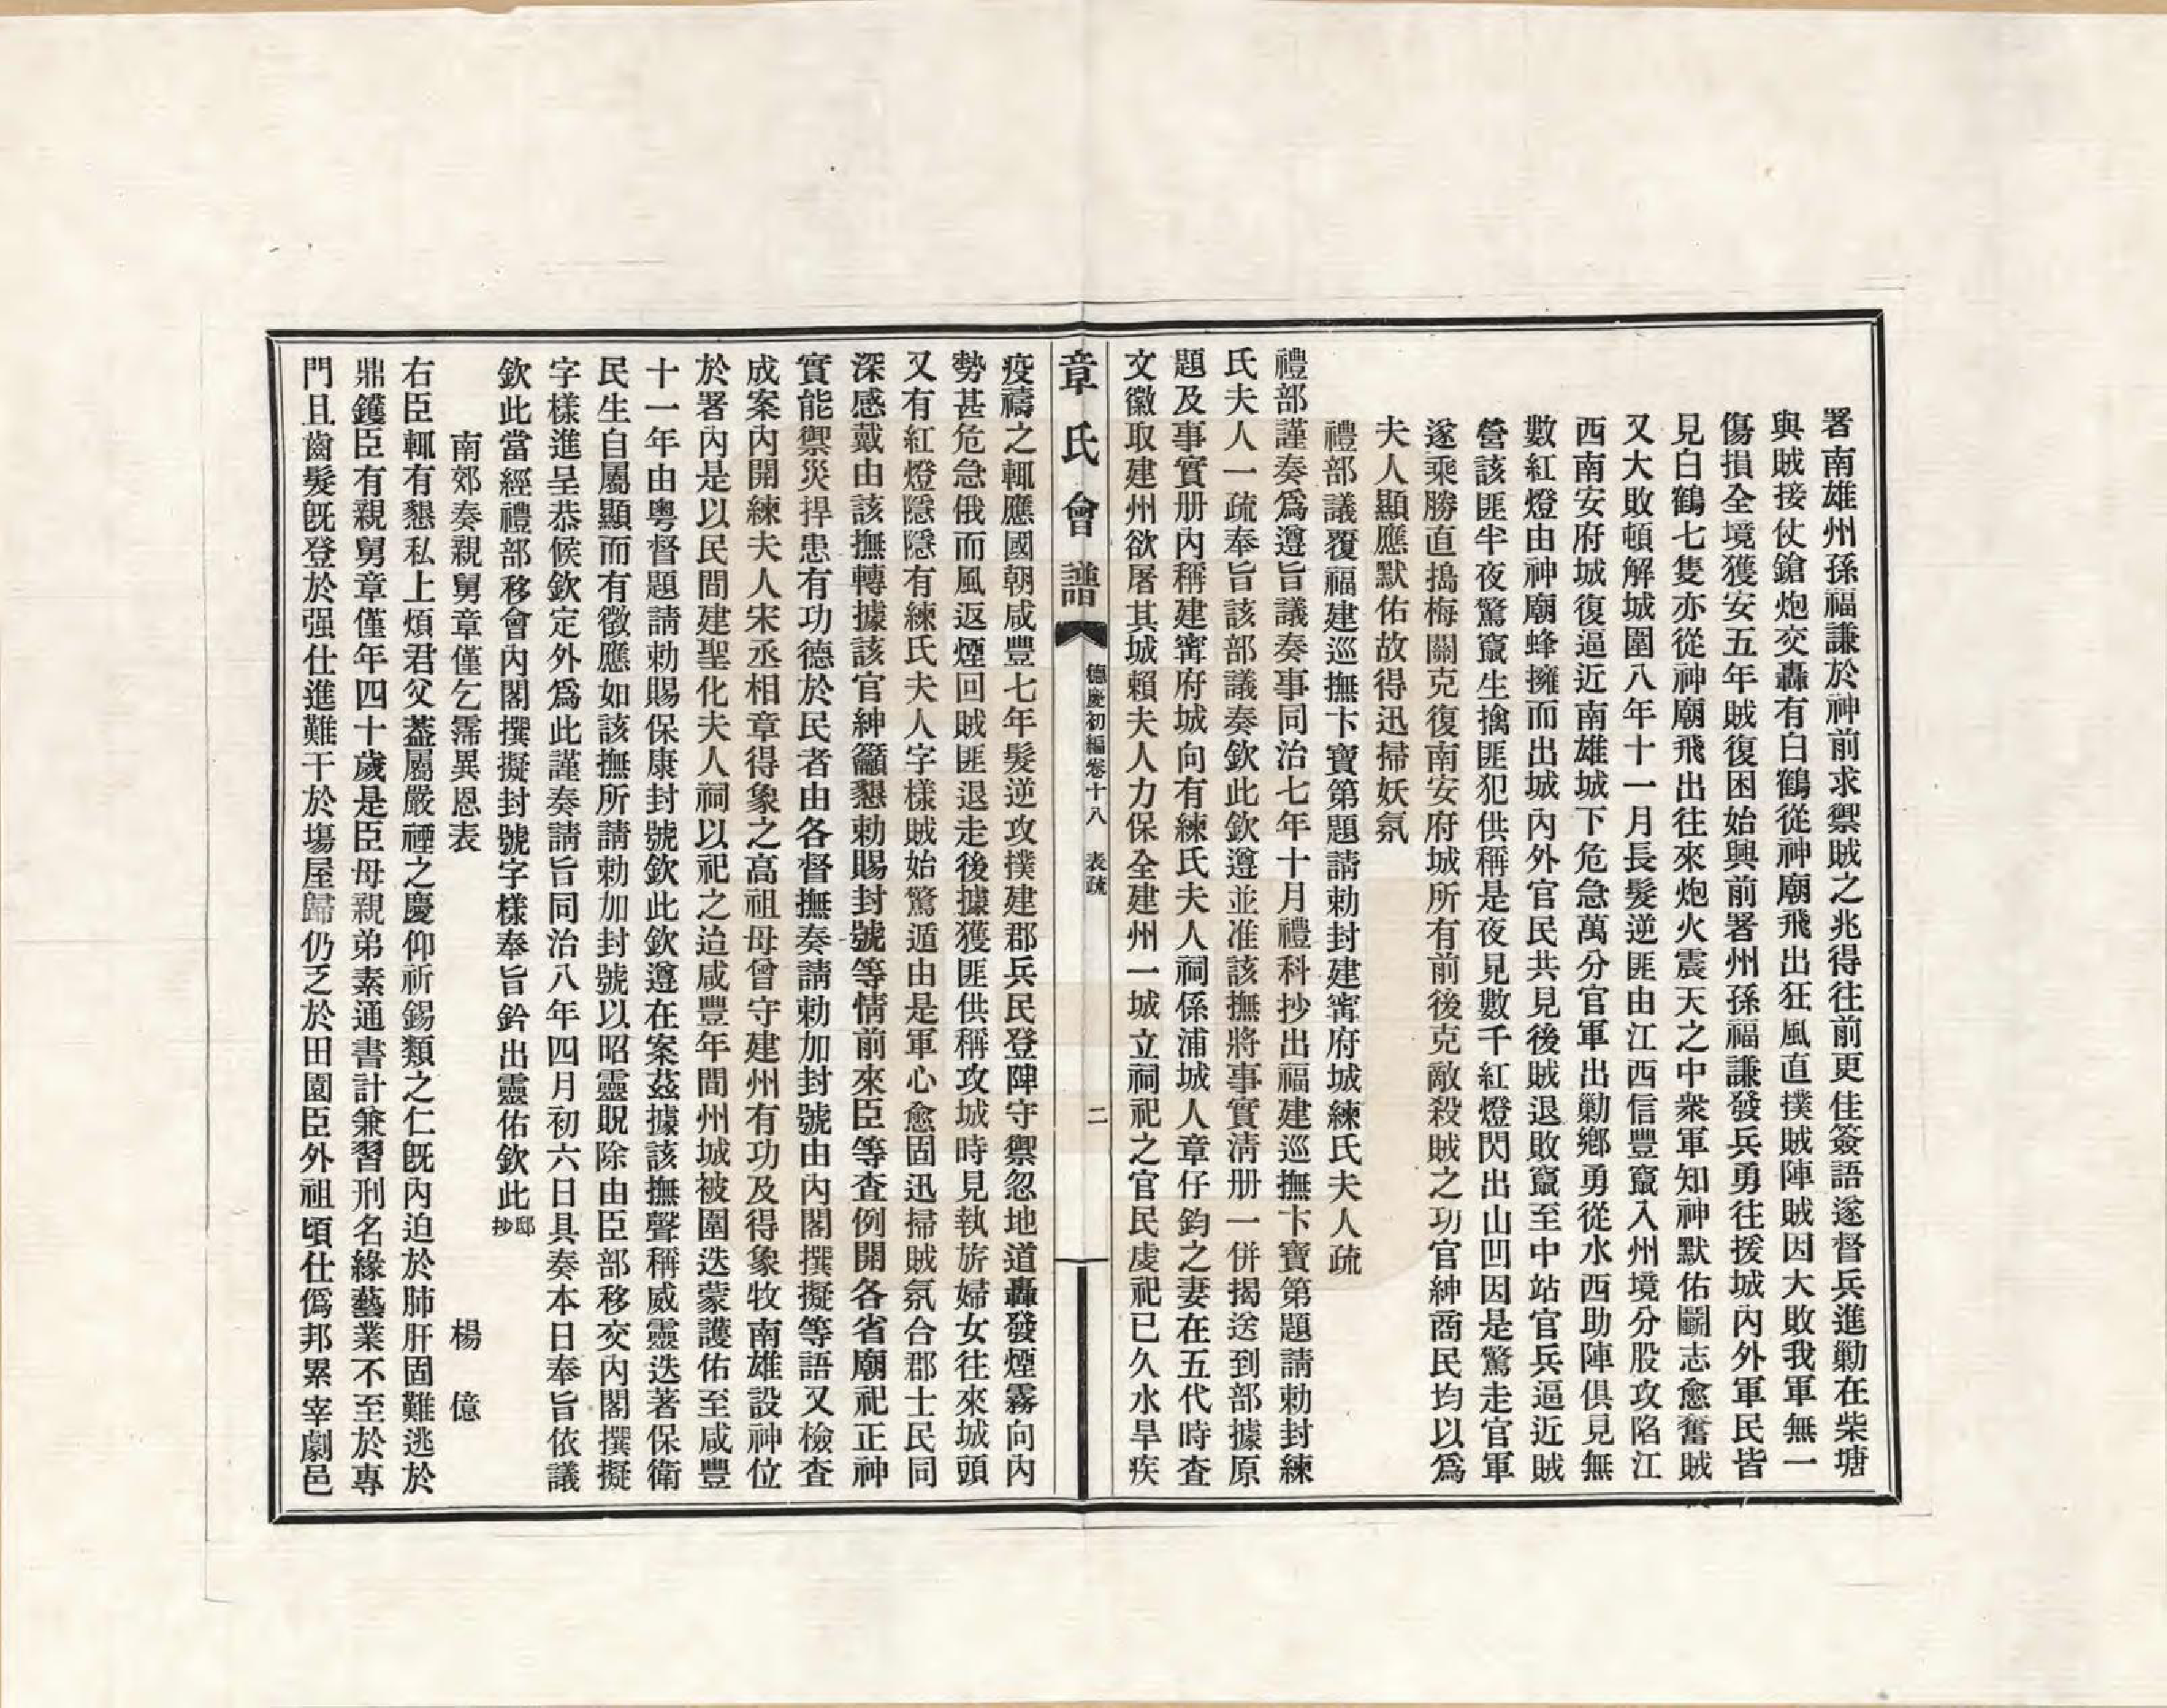 署南雄州孫福謙於神前求禦賊之兆得往前更佳簽語遂督兵進勦在柴塘
與賊接仗鎗炮交轟有白鶴從神廟飛出狂風直撲賊陣賊因大敗我軍無一
傷損全境獲安五年賊復困始興前署州孫福謙發兵勇往援城內外軍民皆
見白鶴七隻亦從神廟飛出往來炮火震天之中衆軍知神默佑鬭志愈奮賊
又大敗頓解城圍八年十一月長髮逆匪由江西信豐竄入州境分股攻陷江
西南安府城復逼近南雄城下危急萬分官軍出勦鄉勇從水西助陣俱見無
數紅燈由神廟蜂擁而出城內外官民共見後賊退敗竄至中站官兵逼近賊
營該匪半夜驚竄生擒匪犯供稱是夜見數千紅燈閃出山凹因是驚走官軍
遂乘勝直搗梅關克復南安府城所有前後克敵殺賊之功官紳商民均以爲
夫人顯應默佑故得迅掃妖氛
禮部議覆福建巡撫卞寶第題請勅封建甯府城練氏夫人疏
禮部謹奏爲遵旨議奏事同治七年十月禮科抄出福建巡撫卞寶第題請勅封練
氏夫人一疏奉旨該部議奏欽此欽遵並准該撫將事實淸册一併揭送到部據原
題及事實册內稱建甯府城向有練氏夫人祠係浦城人章仔鈞之妻在五代時査
文徽取建州欲屠其城賴夫人力保全建州一城立祠祀之官民虔祀已久水旱疾
章氏會譜
德慶初編卷十八 表疏
二
疫禱之輒應國朝咸豐七年髮逆攻撲建郡兵民登陴守禦忽地道轟發煙霧向內
勢甚危急俄而風返煙回賊匪退走後據獲匪供稱攻城時見執旂婦女往來城頭
又有紅燈隱隱有練氏夫人字樣賊始驚遁由是軍心愈固迅掃賊氛合郡士民同
深感戴由該撫轉據該官紳籲懇勅賜封號等情前來臣等査例開各省廟祀正神
實能禦災捍患有功德於民者由各督撫奏請勅加封號由內閣撰擬等語又檢査
成案內開練夫人宋丞相章得象之高祖母曾守建州有功及得象牧南雄設神位
於署內是以民間建聖化夫人祠以祀之迨咸豐年間州城被圍迭蒙護佑至咸豐
十一年由粵督題請勅賜保康封號欽此欽遵在案茲據該撫聲稱威靈迭著保衛
民生自屬顯而有徵應如該撫所請勅加封號以昭靈貺除由臣部移交內閣撰擬
字樣進呈恭候欽定外爲此謹奏請旨同治八年四月初六日具奏本日奉旨依議
欽此當經禮部移會內閣撰擬封號字樣奉旨鈐出靈佑欽此邸抄
南郊奏親舅章僅乞霈異恩表 楊億
右臣輒有懇私上煩君父蓋屬嚴禋之慶仰祈錫類之仁旣內迫於肺肝固難逃於
鼎鑊臣有親舅章僅年四十歲是臣母親弟素通書計兼習刑名緣藝業不至於專
門且齒髮旣登於强仕進難干於塲屋歸仍乏於田園臣外祖頃仕僞邦累宰劇邑